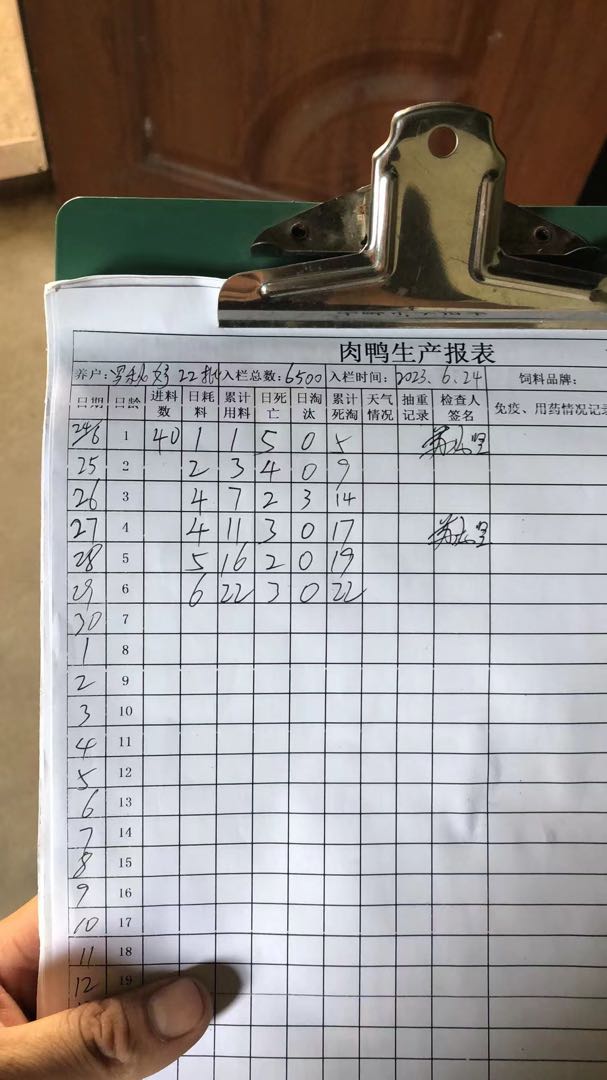 肉鸭生产报表
养户: 22批 入栏总数:6500 入栏时间: 2023.6.24 饲料品牌:
日期 日龄 进料数 日耗料 累计用料 日死亡 日淘汰 累计死淘 天气情况 抽重记录 检查人签名 免疫、用药情况记
24/6 1 40 1 1 5 0 5
25 2 2 3 4 0 9
26 3 4 7 2 3 14
27 4 4 11 3 0 17
28 5 5 16 2 0 19
29 6 6 22 3 0 22
30 7
1 8
2 9
3 10
4 11
5 12
6 13
7 14
8 15
9 16
10 17
11 18
12 19